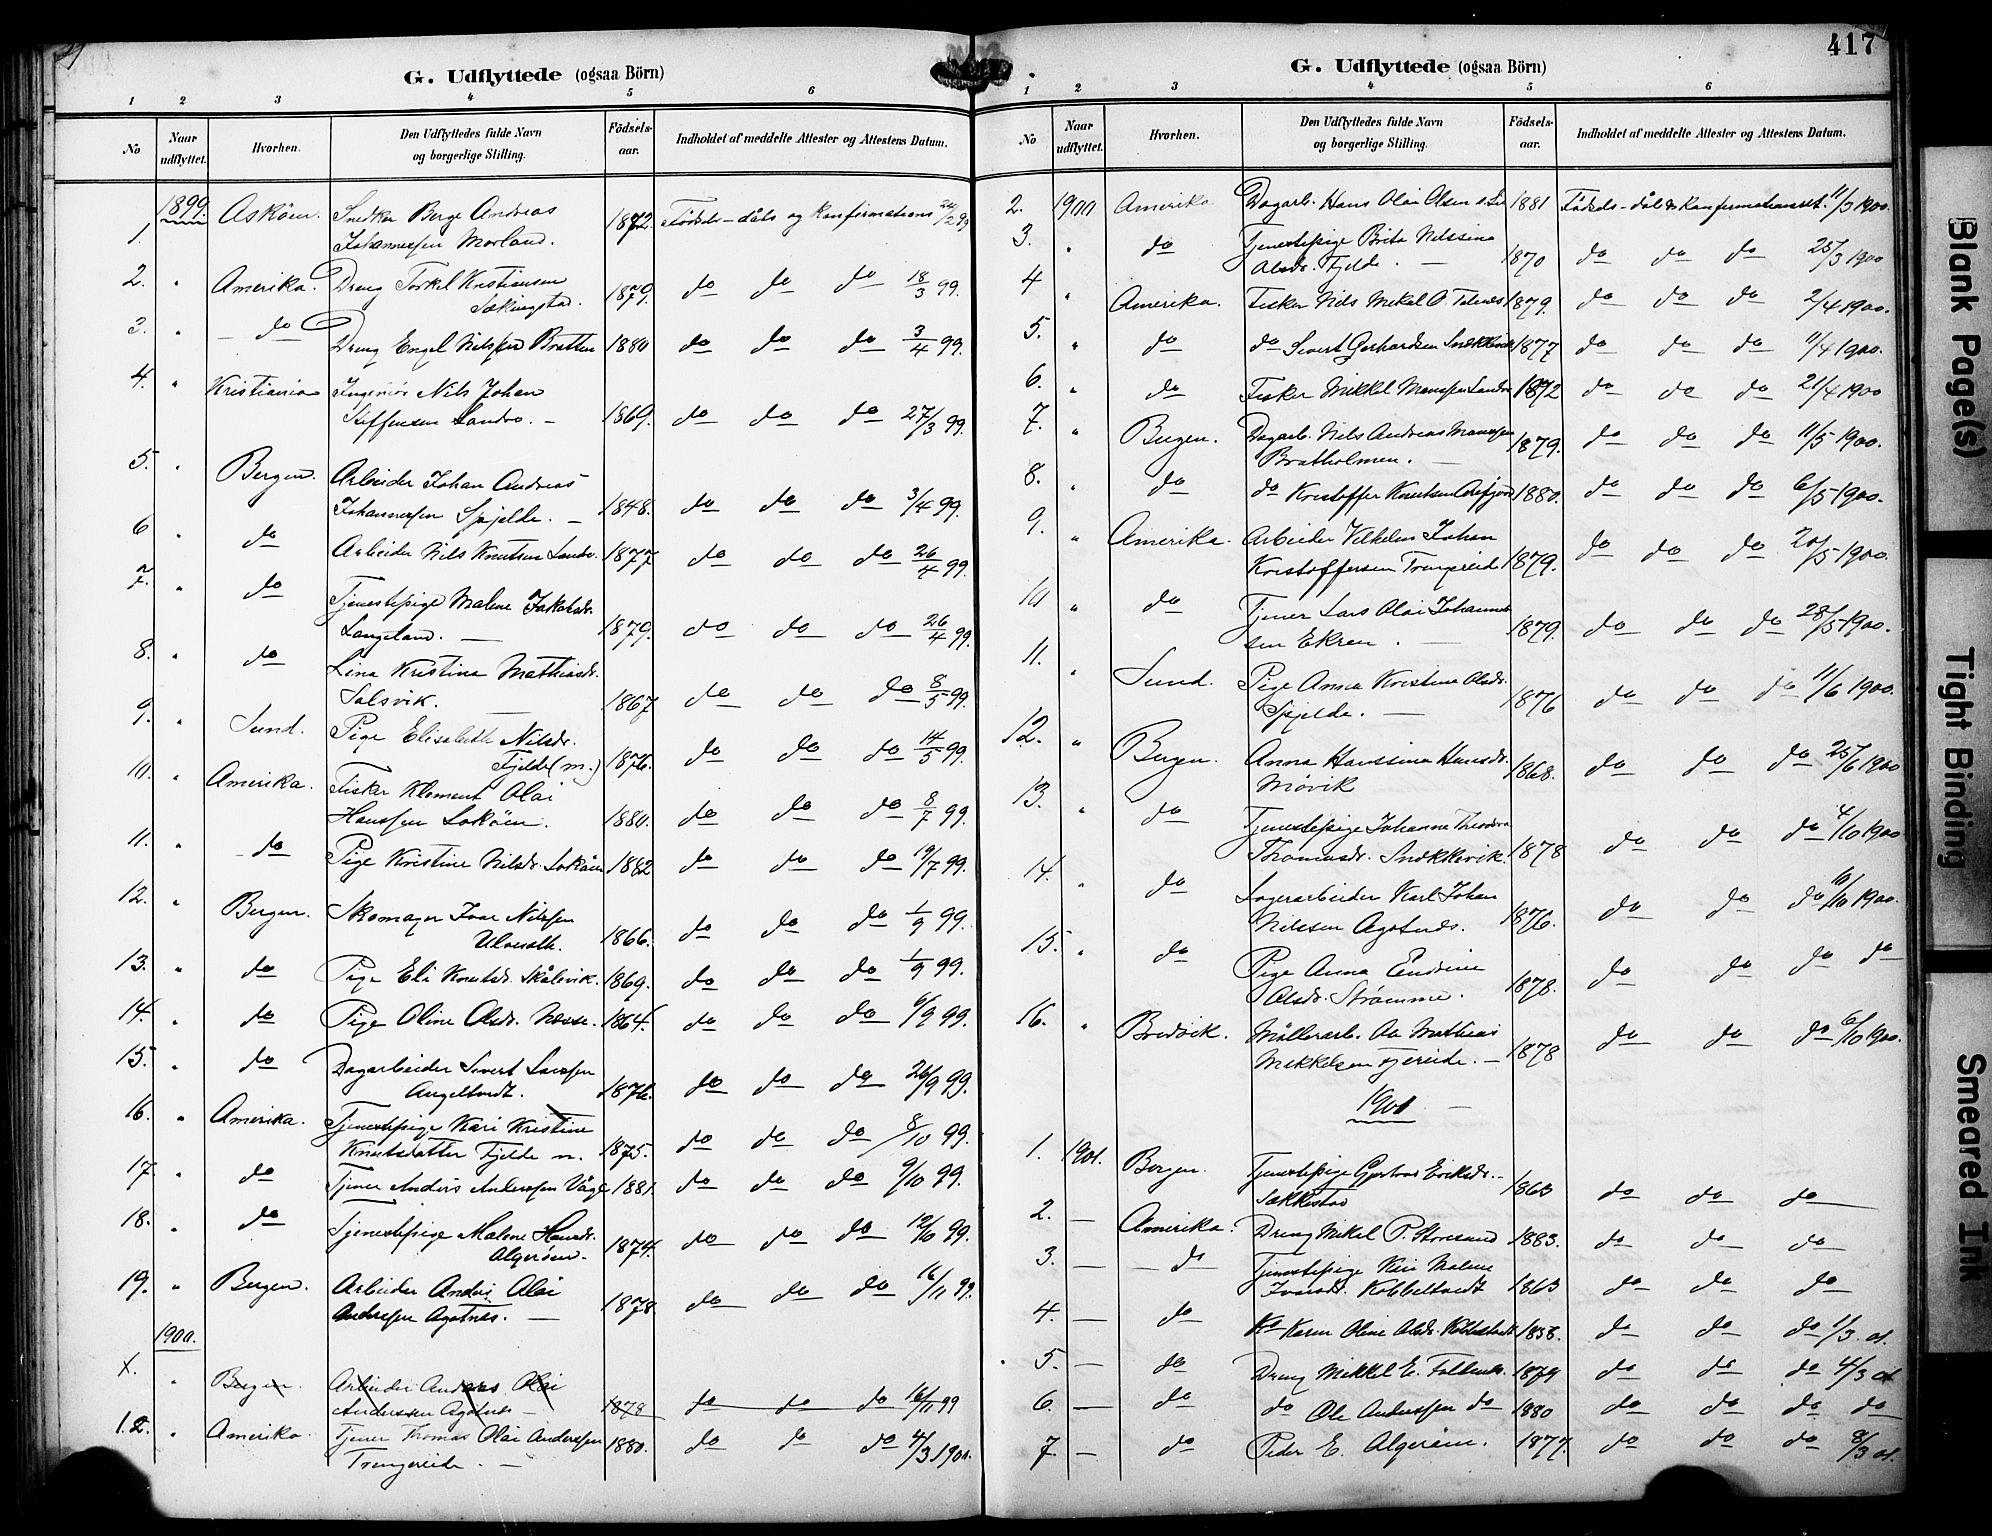 G. Udflyttede (ogsaa Börn)
1 2 3 4 5 6
No Naar udflyttet. Hvorhen. Den Udflyttedes fulde Navn og borgerlige Stilling. Födsels-aar. Indholdet af meddelte Attester og Attestens Datum.
1. 1899. Asköen. Snedker Berge Andreas
Johannessen Morland. 1872. Födsels-dåbs og konfirmations
2. " Amerika. Dreng Torkel Kristiansen
1879. do do do 18/3 99.
3. " do Dreng Engel Nilssen Bratten 1880 do do do 3/4 99.
4. " Kristiania Ingeniör Nils Johan
Steffensen Landro. - 1869. do do do 27/3 99.
5. " Bergen. Arbeider Johan Andreas
Johannessen Spjelde. - 1848. do do do 3/4 99.
6 " do Arbeider Nils Knutsen Landro. 1877 do do do 26/4 99.
7. " do Tjenestepige Malene Jakobsdr.
Langeland. - 1879. do do do 26/4 99.
8. " do Lina Kristina Mathiasdr.
Solsvik. 1867 do do do 8/5 99.
9. " Sund. Pige Elisabeth Nilsdr.
Fjelde (m.) 1876. do do do 14/5 99.
10. " Amerika. Fisker Klement Olai
Hanssen Loköen. 1880. do do do 8/7 99.
11. " do Pige Kristine Nilsdr. Loköen 1882 do do do 19/7 99.
12. " Bergen. Skomager Ivar Nilssen
Ulveseth. 1866. do do do 1/9 99.
13. " do Pige Eli Knutsdr. Skålvik. 1869. do do do 1/9 99.
14. " do Pige Oline Olsdr. Nesse. 1864. do do do 6/9 99.
15. " do Dagarbeider Sivert Larssen
Angeltvedt. 1876. do do do 26/9 99.
16. " Amerika. Tjenestepige Kari Kristine
Knutsdatter Fjelde m. 1875. do do do 8/10 99.
17 " do Tjener Anders Anderssen Våge 1881. do do do 9/10 99.
18. " do Tjenestepige Malene Hansdr.
Algeröen. 1874. do do do 12/10 99.
19. " Bergen. Arbeider Anders Olai
Anderssen Agotnes. - 1878 do do do 16/11 99.
1900.
X. " Bergen. Arbeider Anders Olai
Anderssen Agotnes - 1878 do do do 16/11 99
1.2. " Amerika. Tjener Thomas Olai Anderssen
Trengereide. - 1880. do do do 4/3 1900.
417
G. Udflyttede (ogsaa Börn)
1 2 3 4 5 6
No Naar udflyttet. Hvorhen. Den Udflyttedes fulde Navn og borgerlige Stilling. Födsels-aar. Indholdet af meddelte Attester og Attestens Datum.
2. 1900 Amerika Dagarb. Hans Olai Olsen 1881 Födsels-dåb & konfirmationsatt. 11/3 1900.
3. " do Tjenestepige Brita Nilssina
Olsdr. Fjelde. - 1870 do do do 25/3 1900
4 " Amerika. Fisker Nils Mikal O. 1879. do do do 2/4 1900.
5. " do do Sivert Gerhardsen Snekkevik 1877 do do do 11/4 1900.
6. " do Fisker Mikkel Monssen Landro 1872 do do do 21/4 1900
7. " Bergen. Dagarb. Nils Andreas Monssen
Bratholmen. - 1879. do do do 11/5 1900.
8. " do do Kristoffer Knutsen 1880. do do do 6/5 1900.
9. " Amerika. Arbeider Vilhelm Johan
Kristoffersen Trengereid 1879. do do do 20/5 1900.
10 " do Tjener Lars Olai Johannes
sen Ekren. - 1879. do do do 28/5 1900.
11. " Sund. Pige Anna Kristine Olsdr.
Spjelde. - 1876 do do do 11/6 1900.
12. " Bergen. Anna Hanssina Hansdr.
Mövik 1868. do do do 25/6 1900
13. " do Tjenestepige Johanna Theodora
Thomasdr. Snekkevik. 1878 do do do 4/10 1900
14. " do Lagerarbeider Karl Johan
Nilssen Agotnes. 1876. do do do 1900.
15. " do Pige Anna Endrine
Olsdr. Strömme. 1878. do do do do
16. " Bredvik. Möllerarb. Ole Mathias
Mikkelsen Tjereide. - 1878 do do do 6/10 1900.
1901 -
1. 1901. Bergen. Tjenestepige Gjertrud Eriksdr. -
Sekkestad 1863 do do do
2. - Amerika. Dreng Mikel P. Storesund 1883. do do do
3. - do Tjenestepige Kari Malene
Ivarsdr. Kobbeltvedt 1863 do do do
4. - do Ko Karen Oline Olsdr. Kobbeltvedt 1838. do do do 1/3 01.
5. - do Dreng Mikkel E. 1879 do do do 4/3 01
6. - do do Ole Anderssen do 1880 do do do do
7 - do Peder E. Algeröen. 1877. do do do 8/3 01.
Blank Page(s)
Tight Binding
Smeared Ink